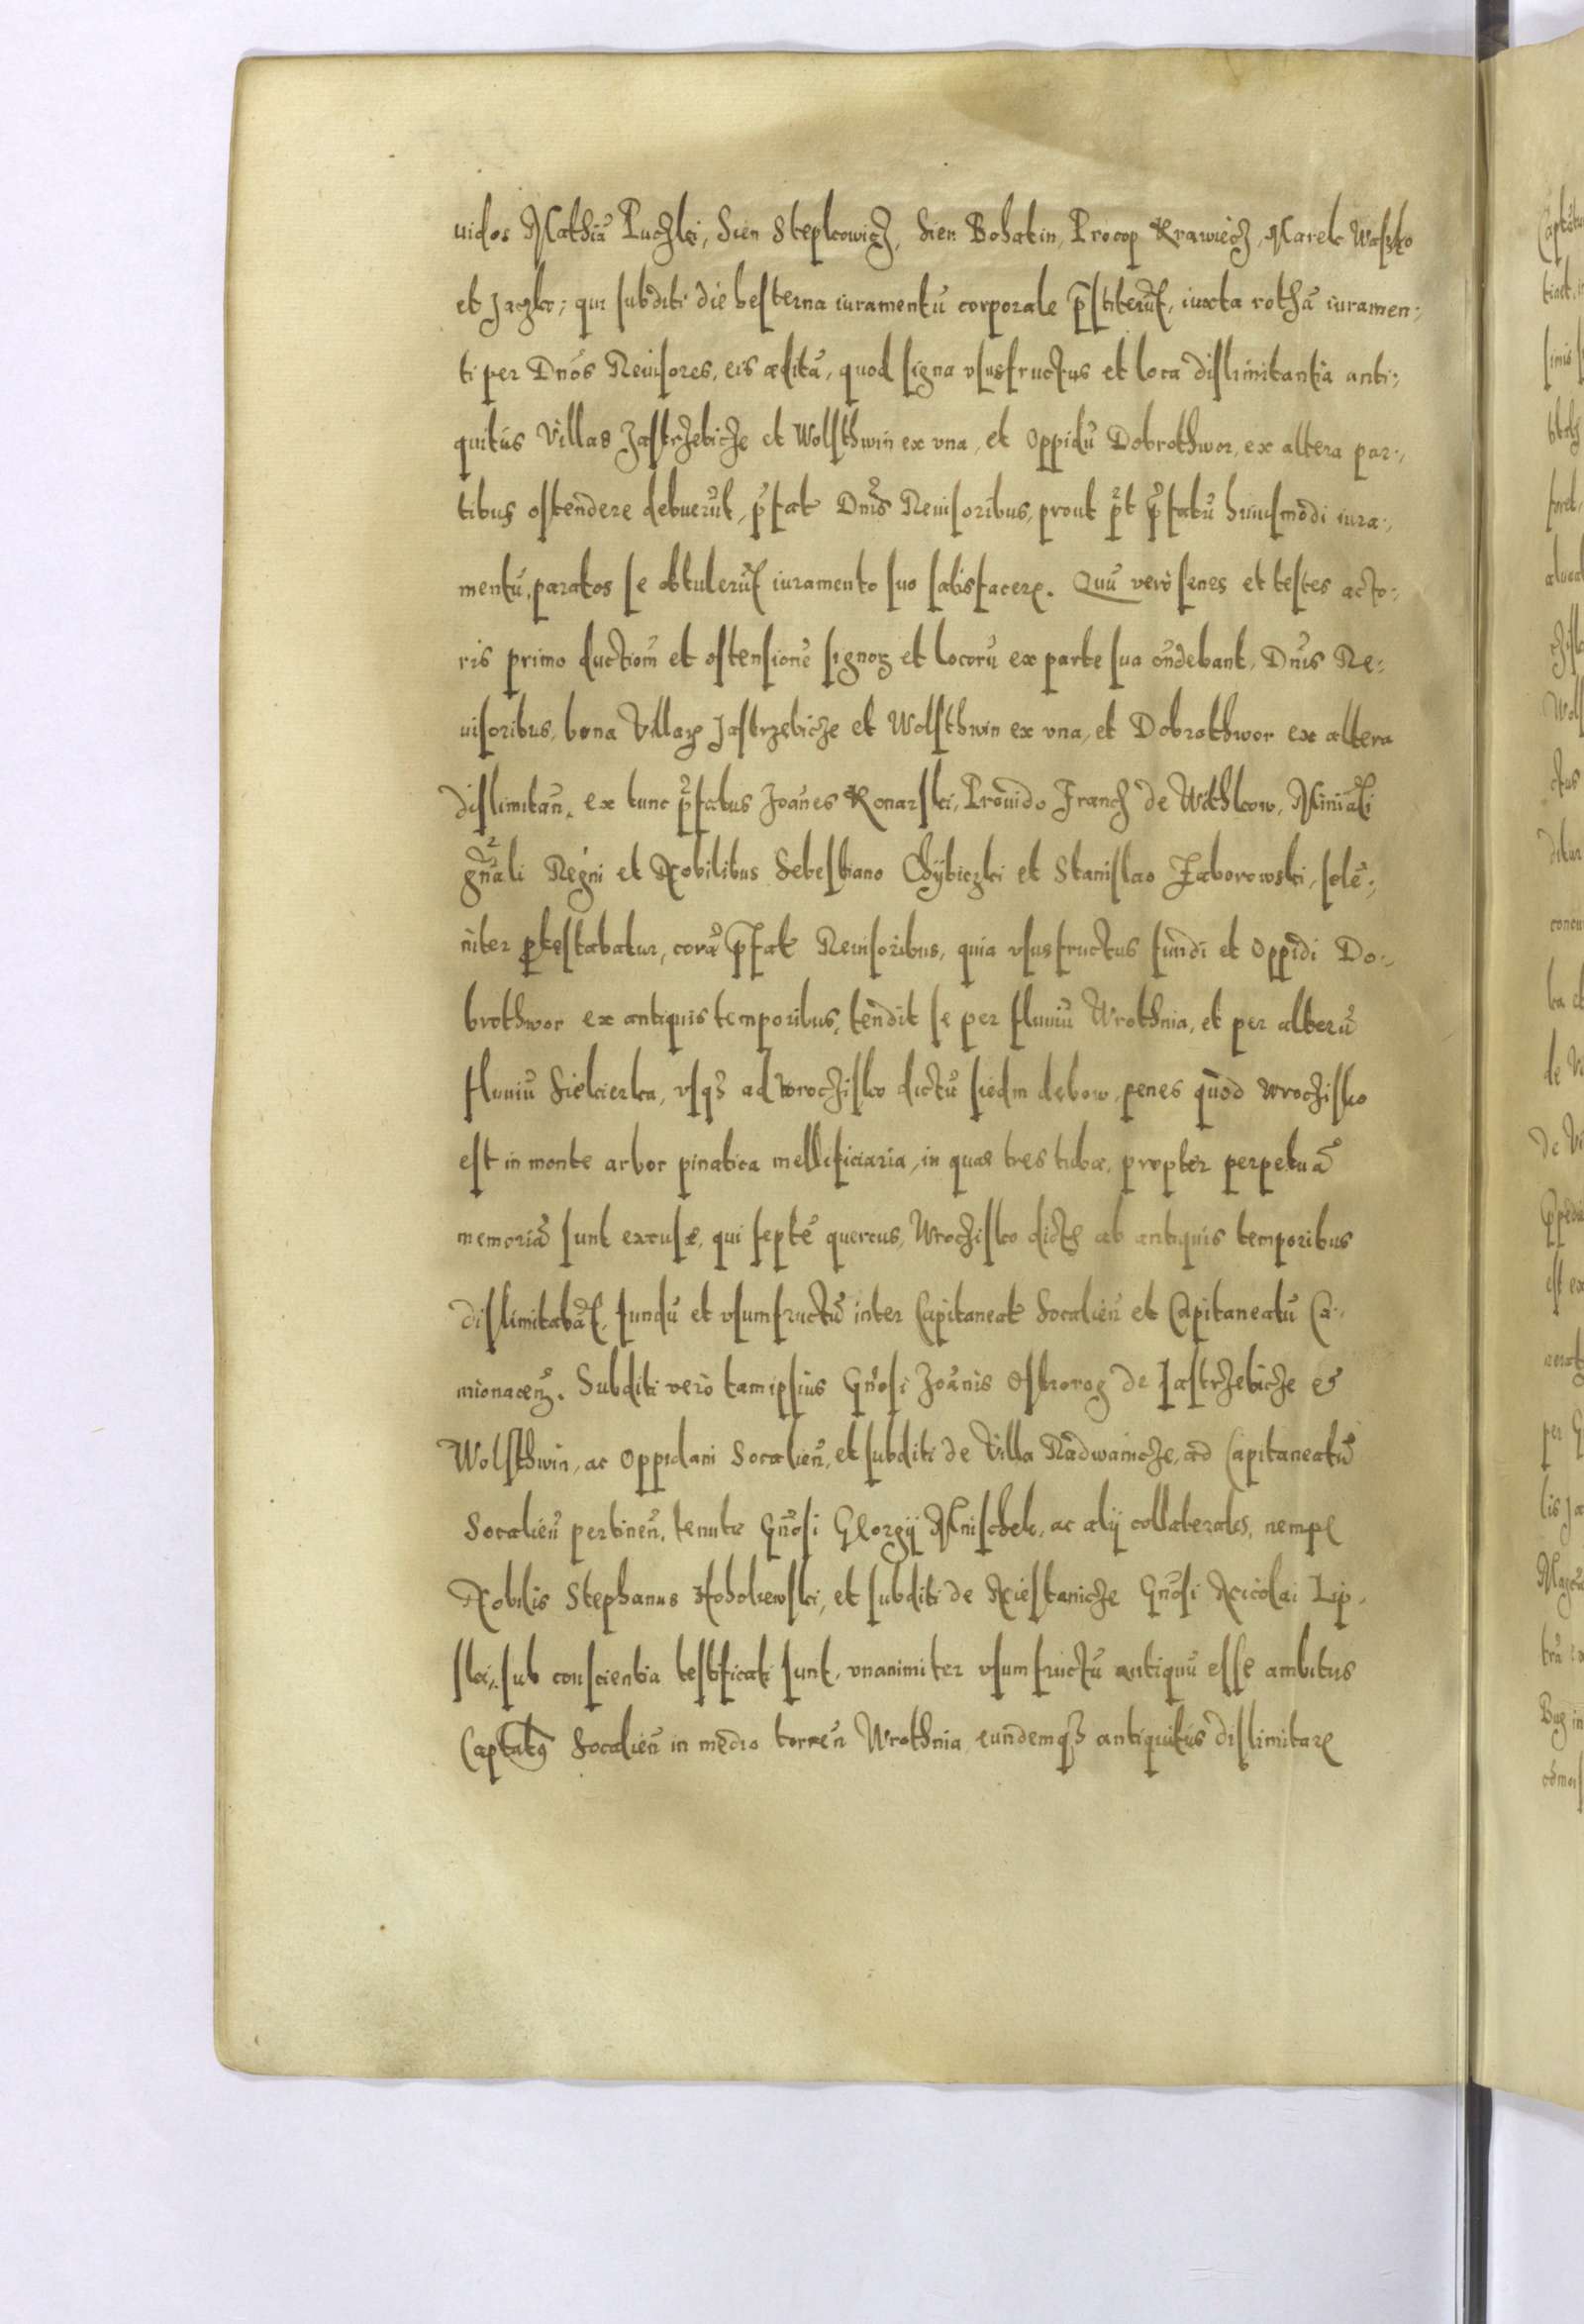 uidos Mathiā Puczki, Sien Stepkowicz, Sien Bohatin, Procop Krawiecz, Marek Wasko
et Jaczko; qui subditi die hesterna iuramentū corporale p̄stiterūt, iuxta rothā iuramen:,
ti per Dnōs Reuisores, eis æditā, quod signa vsusfructus et loca dislimitantia anti:,
quitùs Villas Jastrzebicze et Wolsthwin ex vna, et Oppidū Dobrothwor, ex altera par:,
tibus ostendere debuerūt, p̄fat Dnīs Reuisoribus, prout p̄t p̄statū huiusmodi iura:,
mentū, paratos se obtulerūt iuramento suo satisfacere. Quū verò senes et testes acto:,
ris primo ductiom̄ et ostensionē signoꝝ et locorū ex parte sua ōndebant, Dnīs Re:,
uisoribus, bona Villarꝝ Jastrzebicze et Wolsthwin ex vna, et Dobrothwor ex altera
dislimitan̄. ex tunc p̄fatus Joānes Konarski, Prouido Francz de Withkow, Miniāli
gn̄ali Regni et Nobilibus Sebestiano Chybiczki et Stanislao Zaborowski, solē:,
niter ꝓtestabatur, corā p̄fat Reuisoribus, quia vsusfructus fundi et Oppidi Do:,
brothwor ex antiquis temporibus, tendit se per fluuiū Wrothnia, et per alterū
fluuiū Siekierka, vsqȝ ad wroczisko dictū siedm debow, penes quod wroczisko
est in monte arbor pinatica mellificiaria, in quae tres tubæ, propter perpetuā
memoriā sunt excusæ, qui septē quercus, Wroczisko dictę ab antiquis temporibus
dislimitabāt, fundū et vsumfructū inter Capitaneat Socalien̄ et Capitaneatū Ca:,
mionacen̄. Subditi verò tam ipsius Gn̄osi Joānis Ostrorog de Jastrzebicze et
Wolsthwin, ac Oppidani Socalien̄, et subditi de Villa Radwanicze, ad Capitaneatū
Socalien̄ pertinen̄, tenutę Gn̄osi Georgij Mnischek, ac alij collaterales, nempe
Nobilis Stephanus Hoholiewski, et subditi de Niestanicze Gn̄osi Nicolai Lip,
ski, sub conscientia testificati sunt, vnanimiter vsumfructū antiquū esse ambitus
Captatꝰ Socalien̄ in medio torren̄ Wrothnia eundemqȝ antiquitùs dislimitare